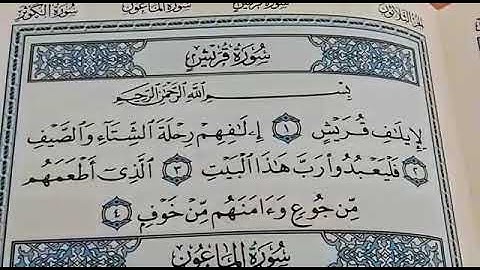 الجزء الثلاثون سورة قريش سورة الماعون سورة الكوثر
سُورَةُ قُرَيْشٍ
بِسْمِ اللَّهِ الرَّحْمَٰنِ الرَّحِيمِ
لِإِيلَٰفِ قُرَيْشٍ ١ إِۦلَٰفِهِمْ رِحْلَةَ ٱلشِّتَآءِ وَٱلصَّيْفِ
٢ فَلْيَعْبُدُوا۟ رَبَّ هَٰذَا ٱلْبَيْتِ ٣ ٱلَّذِىٓ أَطْعَمَهُم
مِّن جُوعٍ وَءَامَنَهُم مِّنْ خَوْفٍۭ ٤
سُورَةُ المَاعُونِ